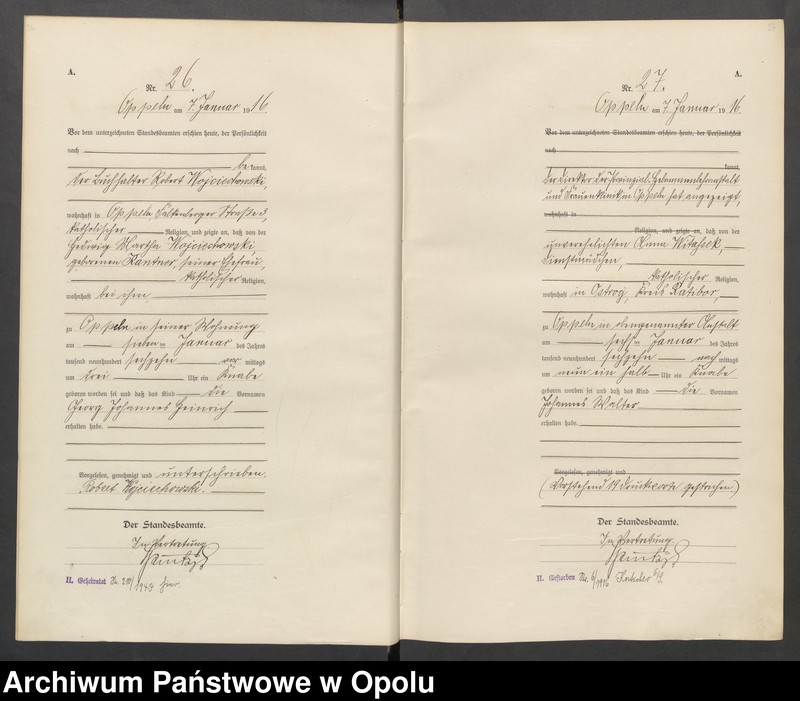 A.
Nr. 26.
Oppeln am 7. Januar 1916.
Vor dem unterzeichneten Standesbeamten erschien heute, der Persönlichkeit
nach
be kannt,
der Buchhalter Robert Wojciechowski,
wohnhaft in Oppeln, Falkenberger Straße
katholischer Religion, und zeigte an, daß von der
Hedwig Martha Wojciechowski
geborenen Kantner, seiner Ehefrau,
katholischer Religion,
wohnhaft bei ihm
zu Oppeln in seiner Wohnung
am sieben ten Januar des Jahres
tausend neunhundert sechzehn vor mittags
um drei Uhr ein Knabe
geboren worden sei und daß das Kind die Vornamen
Georg Johannes Heinrich
erhalten habe.
Vorgelesen, genehmigt und unterschrieben.
Robert Wojciechowski.
Der Standesbeamte.
In Vertretung
II. Geheiratet Nr.
A.
Nr. 27.
Oppeln am 7. Januar 1916.
Vor dem unterzeichneten Standesbeamten erschien heute, der Persönlichkeit
nach
kannt,
Der Direktor der Provinzial-Hebammenlehranstalt
und Frauenklinik in Oppeln hat angezeigt,
wohnhaft in
Religion, und zeigte an, daß von der
unverehelichten Anna Witassek,
Dienstmädchen,
katholischer Religion,
wohnhaft in Ostrog, Kreis Ratibor,
zu Oppeln in obengenannter Anstalt
am sechs ten Januar des Jahres
tausend neunhundert sechzehn nach mittags
um neun ein halb Uhr ein Knabe
geboren worden sei und daß das Kind die Vornamen
Johannes Walter
erhalten habe.
Vorgelesen, genehmigt und
(Vorstehend 19 Druckworte gestrichen)
Der Standesbeamte.
In Vertretung.
II. Gestorben Nr. 6/1916
Archiwum Państwowe w Opolu